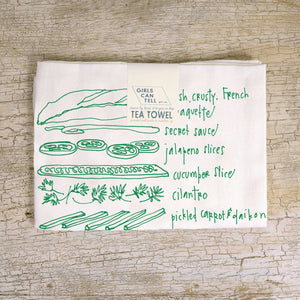 GIRLS
CAN
TELL
TEA TOWEL
sh, crusty, French
baguette/
secret sauce/
jalapeño slices
cucumber slice/
cilantro
pickled carrot & daikon